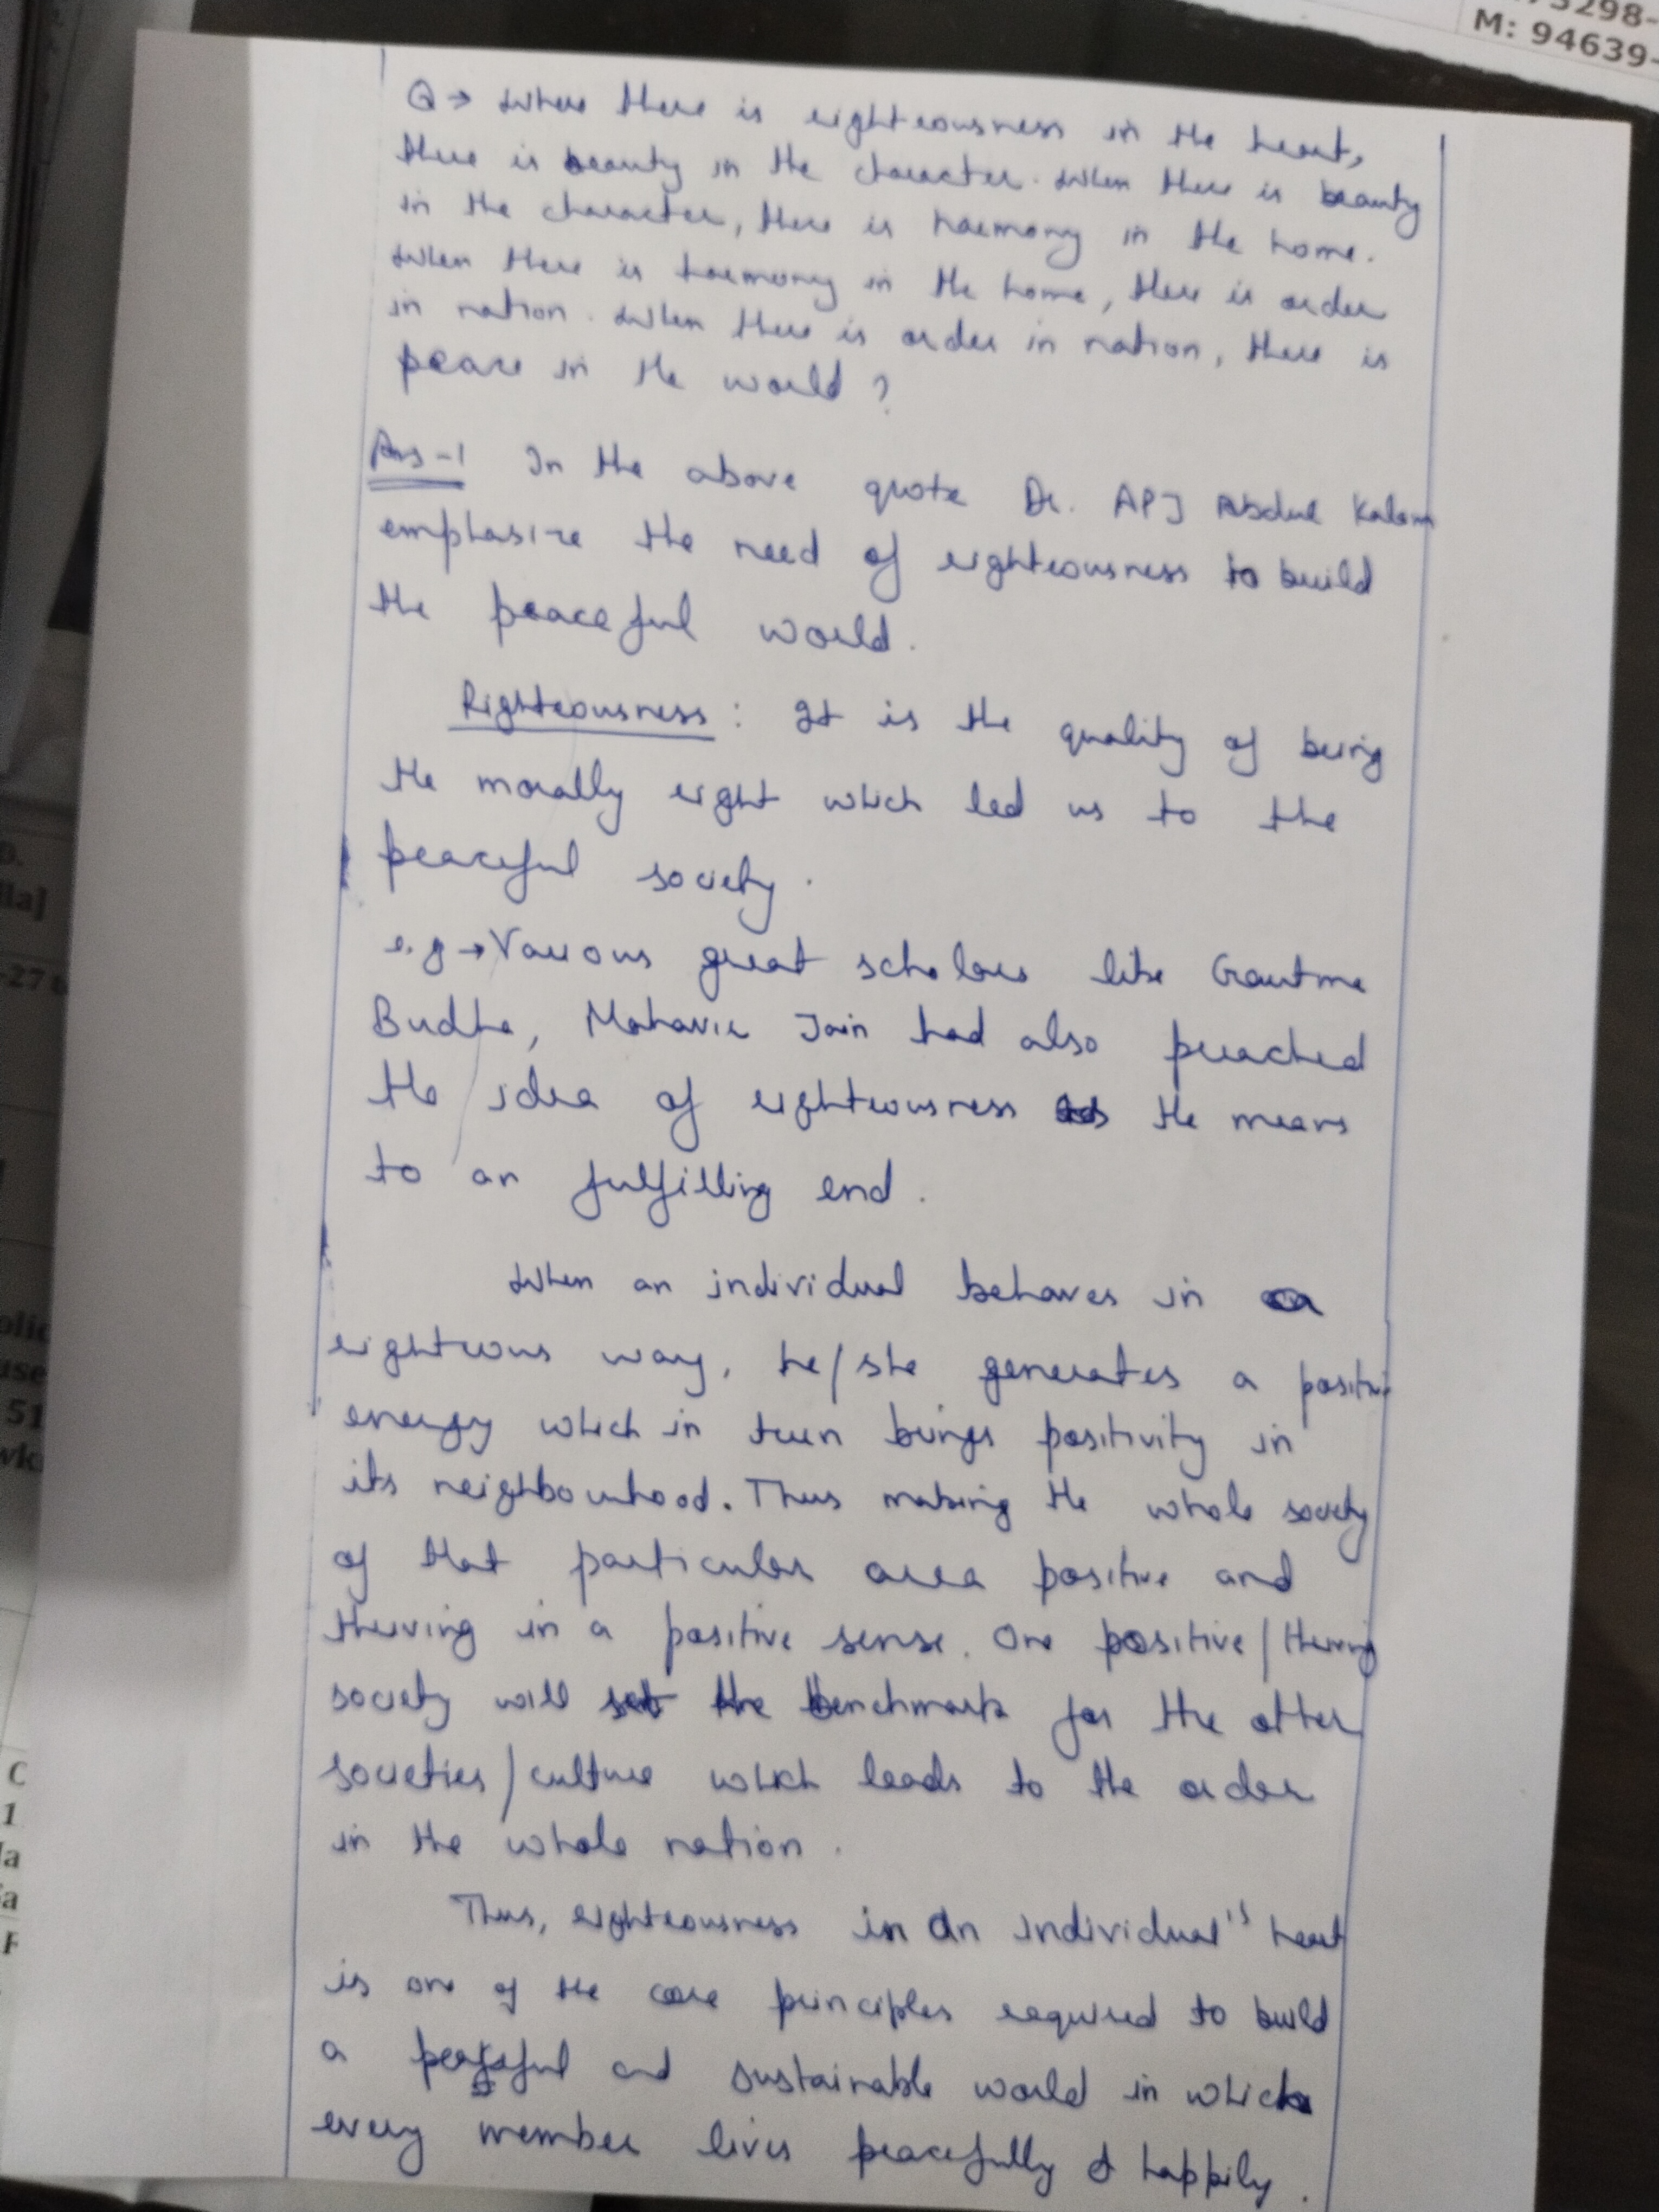 73298-
M: 94639-
Q → Where there is righteousness in the heart,
there is beauty in the character. When there is beauty
in the character, there is harmony in the home.
When there is harmony in the home, there is order
in nation. When there is order in nation, there is
peace in the world ?
Ans-1 In the above quote Dr. APJ Abdul Kalam
emphasize the need of righteousness to build
the peaceful world.
Righteousness : It is the quality of being
the morally right which led us to the
peaceful society.
e.g → Various great scholars like Gautma
Budha, Mahavir Jain had also preached
the idea of righteousness as the means
to an fulfilling end.
When an individual behaves in a
righteous way, he/she generates a positive
energy which in turn brings positivity in
its neighbourhood. Thus making the whole society
of that particular area positive and
thriving in a positive sense. One positive/thriving
society will set the benchmark for the other
societies/culture which leads to the order
in the whole nation.
Thus, righteousness in an individual's heart
is one of the core principles required to build
a peaceful and sustainable world in which
every member lives peacefully & happily.
lla]
-27
51